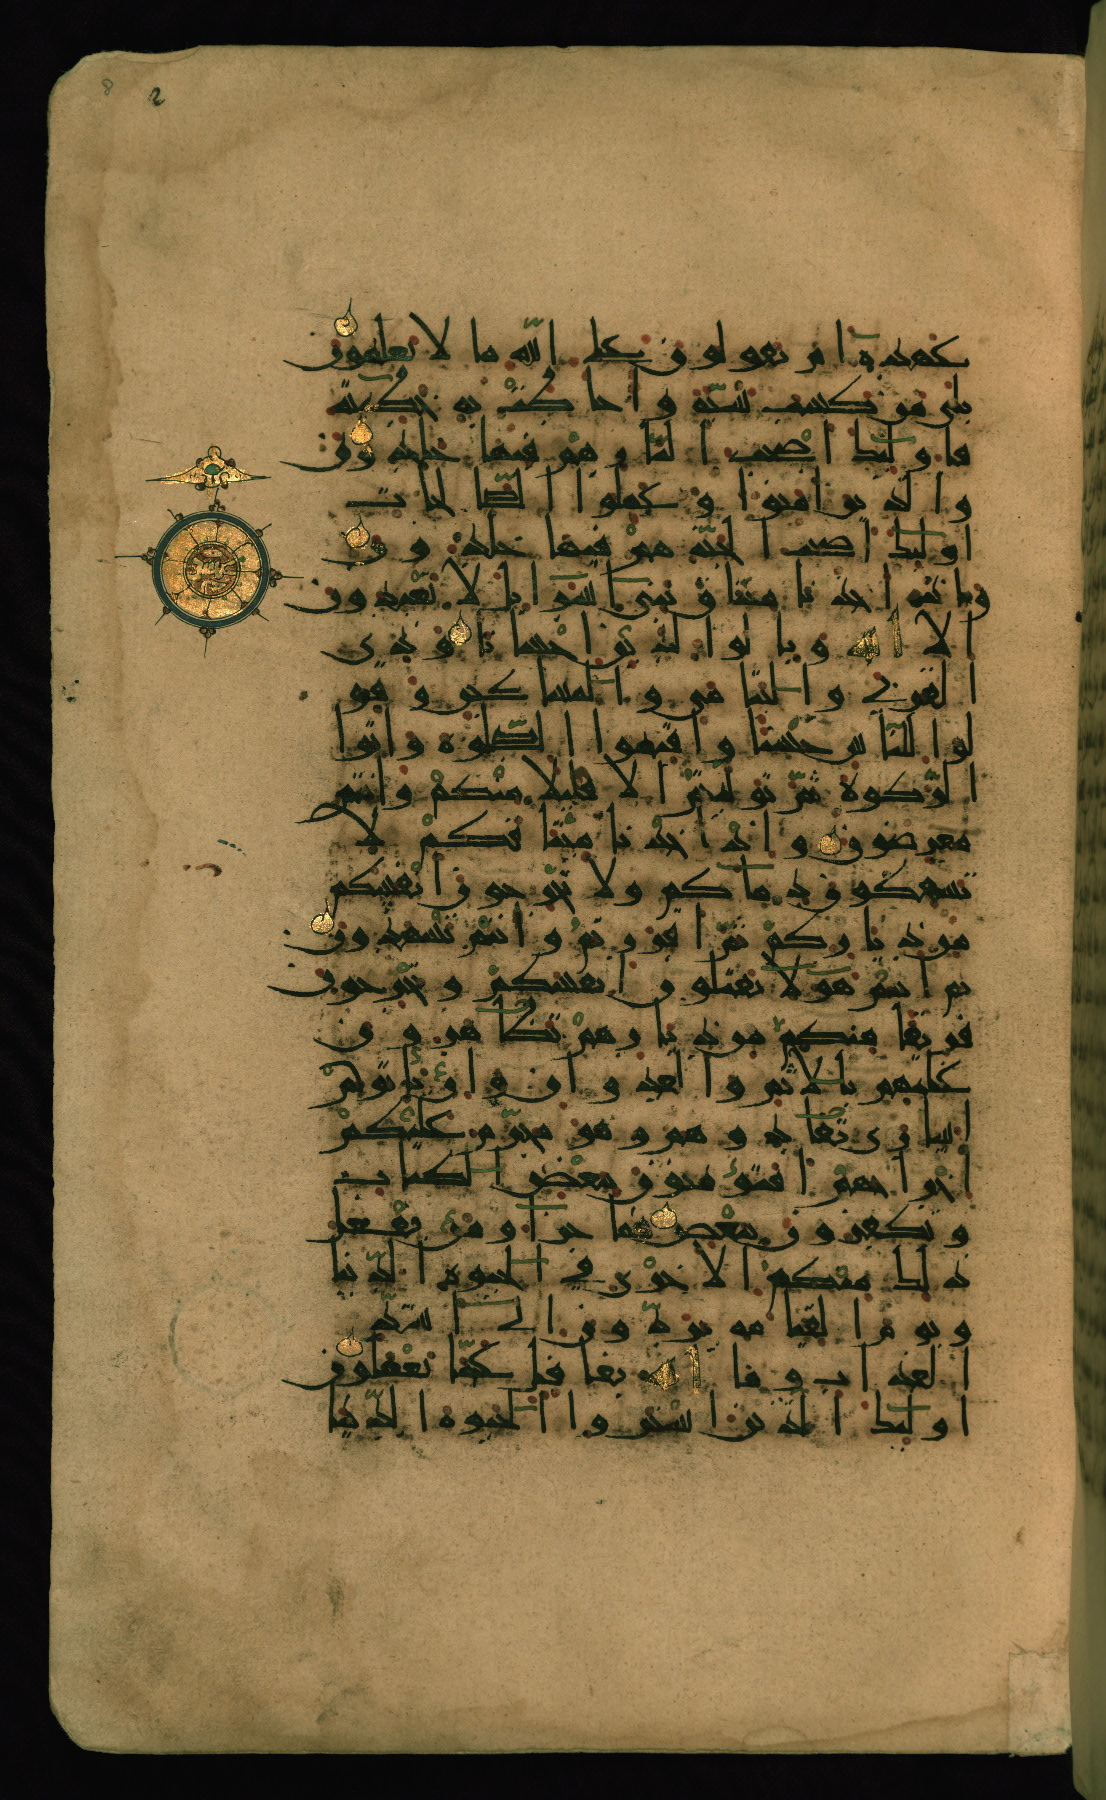 8 2
عهده ام تقولون على الله ما لا تعلمون
بلى من كسب سيّئة واحاطت به خطيئته
فاولئك اصحب النّار هم فيها خلدون
والذين امنوا وعملوا الصّالحات
اولئك اصحب الجنّة هم فيها خلدون
واذ اخذنا ميثاق بنى اسرايل لا تعبدون
الا الله وبالوالدين احسانا وذى
القربى واليتامى والمساكين وقو
لوا للنّاس حسنا واقيموا الصّلوة واتوا
الزّكوة ثمّ تولّيتم الا قليلا منكم وانتم
معرضون واذ اخذنا ميثاقكم لا
تسفكون دماكم ولا تخرجون انفسكم
من دياركم ثمّ اقررتم وانتم تشهدون
ثم انتم هولا تقتلون انفسكم وتخرجون
فريقا منكم من ديارهم تظّاهرون
عليهم بالاثم والعدوان وان ياتوكم
اسارى تفادوهم وهو محرّم عليكم
اخراجهم افتؤمنون ببعض الكتاب
وتكفرون ببعض فما جزا من يفعل
ذلك منكم الا خزى فى الحيوة الدّنيا
ويوم القيامه يردّون الى اشدّ
العذاب وما الله بغافل عمّا تعملون
اولئك الذين اشتروا الحيوة الدّنيا